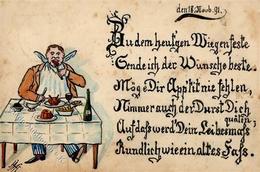 den 18. Novb. 91.
Zu dem heut'gen Wiegenfeste
Sende ich der Wünsche beste.
Mög' Dir App'tit nie fehlen,
Nimmer auch der Durst Dich
quälen,
Auf dass werd' Dein Leibesmass
Rundlich wie ein altes Fass.